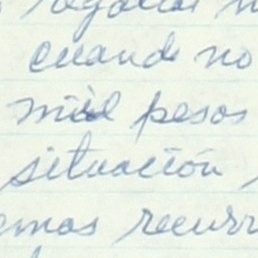 cuando no
mil pesos
situación
emos recurr